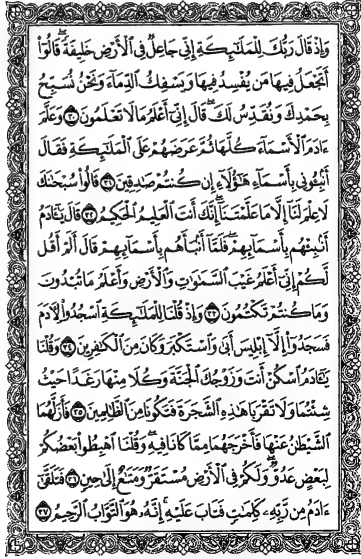 وَإِذْ قَالَ رَبُّكَ لِلْمَلَٰٓئِكَةِ إِنِّي جَاعِلٌ فِي ٱلْأَرْضِ خَلِيفَةً ۖ قَالُوٓا۟
أَتَجْعَلُ فِيهَا مَن يُفْسِدُ فِيهَا وَيَسْفِكُ ٱلدِّمَآءَ وَنَحْنُ نُسَبِّحُ
بِحَمْدِكَ وَنُقَدِّسُ لَكَ ۖ قَالَ إِنِّيٓ أَعْلَمُ مَا لَا تَعْلَمُونَ ٣٠ وَعَلَّمَ
ءَادَمَ ٱلْأَسْمَآءَ كُلَّهَا ثُمَّ عَرَضَهُمْ عَلَى ٱلْمَلَٰٓئِكَةِ فَقَالَ
أَنۢبِـُٔونِي بِأَسْمَآءِ هَٰٓؤُلَآءِ إِن كُنتُمْ صَٰدِقِينَ ٣١ قَالُوا۟ سُبْحَٰنَكَ
لَا عِلْمَ لَنَآ إِلَّا مَا عَلَّمْتَنَآ ۖ إِنَّكَ أَنتَ ٱلْعَلِيمُ ٱلْحَكِيمُ ٣٢ قَالَ يَٰٓـَٔادَمُ
أَنۢبِئْهُم بِأَسْمَآئِهِمْ ۖ فَلَمَّآ أَنۢبَأَهُم بِأَسْمَآئِهِمْ قَالَ أَلَمْ أَقُل
لَّكُمْ إِنِّيٓ أَعْلَمُ غَيْبَ ٱلسَّمَٰوَٰتِ وَٱلْأَرْضِ وَأَعْلَمُ مَا تُبْدُونَ
وَمَا كُنتُمْ تَكْتُمُونَ ٣٣ وَإِذْ قُلْنَا لِلْمَلَٰٓئِكَةِ ٱسْجُدُوا۟ لِءَادَمَ
فَسَجَدُوٓا۟ إِلَّآ إِبْلِيسَ أَبَىٰ وَٱسْتَكْبَرَ وَكَانَ مِنَ ٱلْكَٰفِرِينَ ٣٤ وَقُلْنَا
يَٰٓـَٔادَمُ ٱسْكُنْ أَنتَ وَزَوْجُكَ ٱلْجَنَّةَ وَكُلَا مِنْهَا رَغَدًا حَيْثُ
شِئْتُمَا وَلَا تَقْرَبَا هَٰذِهِ ٱلشَّجَرَةَ فَتَكُونَا مِنَ ٱلظَّٰلِمِينَ ٣٥ فَأَزَلَّهُمَا
ٱلشَّيْطَٰنُ عَنْهَا فَأَخْرَجَهُمَا مِمَّا كَانَا فِيهِ ۖ وَقُلْنَا ٱهْبِطُوا۟ بَعْضُكُمْ
لِبَعْضٍ عَدُوٌّ ۖ وَلَكُمْ فِي ٱلْأَرْضِ مُسْتَقَرٌّ وَمَتَٰعٌ إِلَىٰ حِينٍ ٣٦ فَتَلَقَّىٰٓ
ءَادَمُ مِن رَّبِّهِۦ كَلِمَٰتٍ فَتَابَ عَلَيْهِ ۚ إِنَّهُۥ هُوَ ٱلتَّوَّابُ ٱلرَّحِيمُ ٣٧